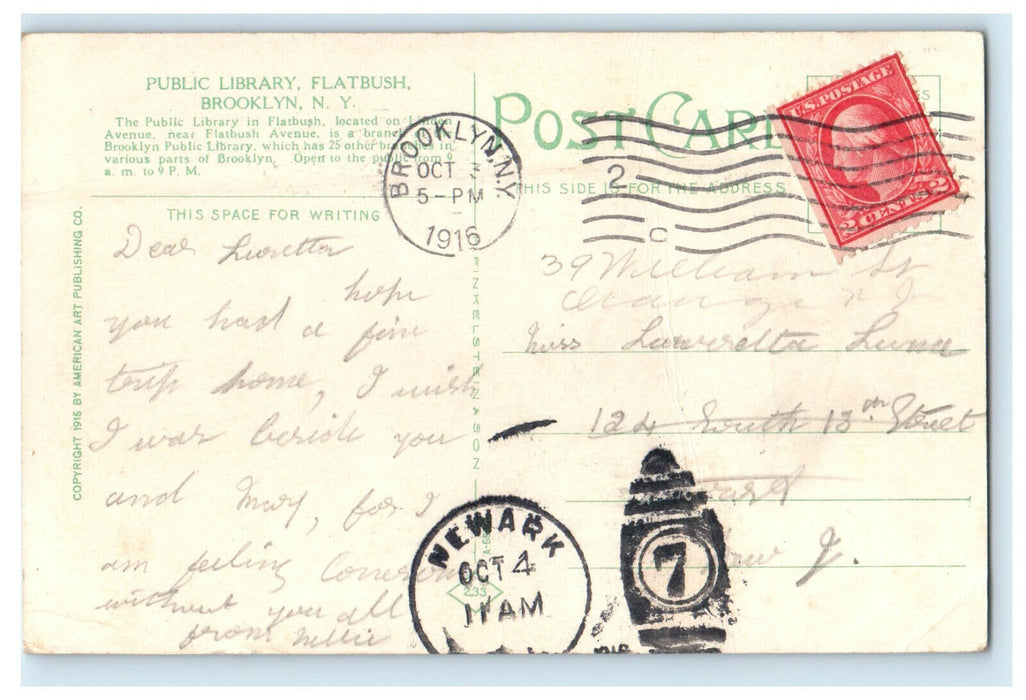 PUBLIC LIBRARY, FLATBUSH,
BROOKLYN, N. Y.
The Public Library in Flatbush, located on Linden
Avenue, near Flatbush Avenue, is a branch of the
Brooklyn Public Library, which has 25 other branches in
various parts of Brooklyn. Open to the public from 9
a. m. to 9 P. M.
THIS SPACE FOR WRITING
Dear Luretta
hope
you had a fine
trip home, I wish
I was beside you
and Mary, for I
am feeling
without you all
from Nellie
COPYRIGHT 1915 BY AMERICAN ART PUBLISHING CO.
BROOKLYN, N.Y.
OCT 3
5-PM
1916
POST CARD
THIS SIDE IS FOR THE ADDRESS
2
C
U.S. POSTAGE
2 CENTS 2
39 William St
Orange N J
Miss Laurretta Lunn
124 South 13th Street
J.
FINKELSTEIN & SON
NEWARK
OCT 4
11 AM
233
7